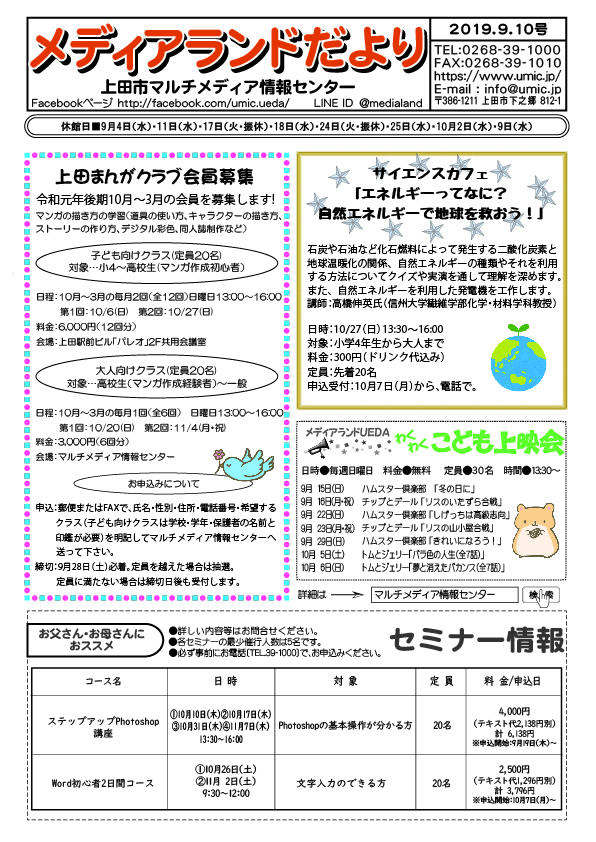 メディアランドだより
上田市マルチメディア情報センター
Facebookページ http://facebook.com/umic.ueda/ LINE ID @medialand
2019.9.10号
TEL:0268-39-1000
FAX:0268-39-1010
https://www.umic.jp/
E-mail : info@umic.jp
〒386-1211 上田市下之郷 812-1
休館日■9月4日(水)・11日(水)・17日(火・振休)・18日(水)・24日(火・振休)・25日(水)・10月2日(水)・9日(水)
上田まんがクラブ会員募集
令和元年後期10月～3月の会員を募集します!
マンガの描き方の学習(道具の使い方、キャラクターの描き方、
ストーリーの作り方、デジタル彩色、同人誌制作など)
子ども向けクラス(定員20名)
対象…小4～高校生(マンガ作成初心者)
日程:10月～3月の毎月2回(全12回)日曜日13:00～16:00
第1回:10/6(日) 第2回:10/27(日)
料金:6,000円(12回分)
会場:上田駅前ビル「パレオ」2F共用会議室
大人向けクラス(定員20名)
対象…高校生(マンガ作成経験者)～一般
日程:10月～3月の毎月1回(全6回) 日曜日13:00～16:00
第1回:10/20(日) 第2回:11/4(月・祝)
料金:3,000円(6回分)
会場:マルチメディア情報センター
お申込みについて
申込:郵便またはFAXで、氏名・性別・住所・電話番号・希望する
クラス(子ども向けクラスは学校・学年・保護者の名前と
印鑑が必要)を明記してマルチメディア情報センターへ
送って下さい。
締切:9月28日(土)必着。定員を越えた場合は抽選。
定員に満たない場合は締切日後も受付します。
サイエンスカフェ
「エネルギーってなに?
自然エネルギーで地球を救おう!」
石炭や石油など化石燃料によって発生する二酸化炭素と
地球温暖化の関係、自然エネルギーの種類やそれを利用
する方法についてクイズや実演を通して理解を深めます。
また、自然エネルギーを利用した発電機を工作します。
講師:高橋伸英氏(信州大学繊維学部化学・材料学科教授)
日時:10/27(日)13:30～16:00
対象:小学4年生から大人まで
料金:300円(ドリンク代込み)
定員:先着20名
申込受付:10月7日(月)から、電話で。
メディアランドUEDA
わくわくこども上映会
日時●毎週日曜日 料金●無料 定員●30名 時間●13:30～
9月 15日(日) ハムスター倶楽部 「冬の日に」
9月 16日(月・祝) チップとデール「リスのいたずら合戦」
9月 22日(日) ハムスター倶楽部 「しげっちは高級志向」
9月 23日(月・祝) チップとデール「リスの山小屋合戦」
9月 29日(日) ハムスター倶楽部 「きれいになろう!」
10月 5日(土) トムとジェリー「バラ色の人生(全7話)」
10月 6日(日) トムとジェリー「夢と消えたバカンス(全7話)」
詳細は マルチメディア情報センター 検索
お父さん・お母さんに
おススメ
●詳しい内容等はお問合せください。
●各セミナーの最少催行人数は5名です。
●必ず事前にお電話(TEL39-1000)で、お申込みください。
セミナー情報
コース名 日 時 対 象 定 員 料 金/申込日
ステップアップPhotoshop
講座
①10月10日(木)②10月17日(木)
③10月31日(木)④11月7日(木)
13:30～16:00
Photoshopの基本操作が分かる方
20名
4,000円
(テキスト代2,138円別)
計 6,138円
※申込開始:9月19日(木)～
Word初心者2日間コース
①10月26日(土)
②11月 2日(土)
9:30～12:00
文字入力のできる方
20名
2,500円
(テキスト代1,296円別)
計 3,796円
※申込開始:10月7日(月)～